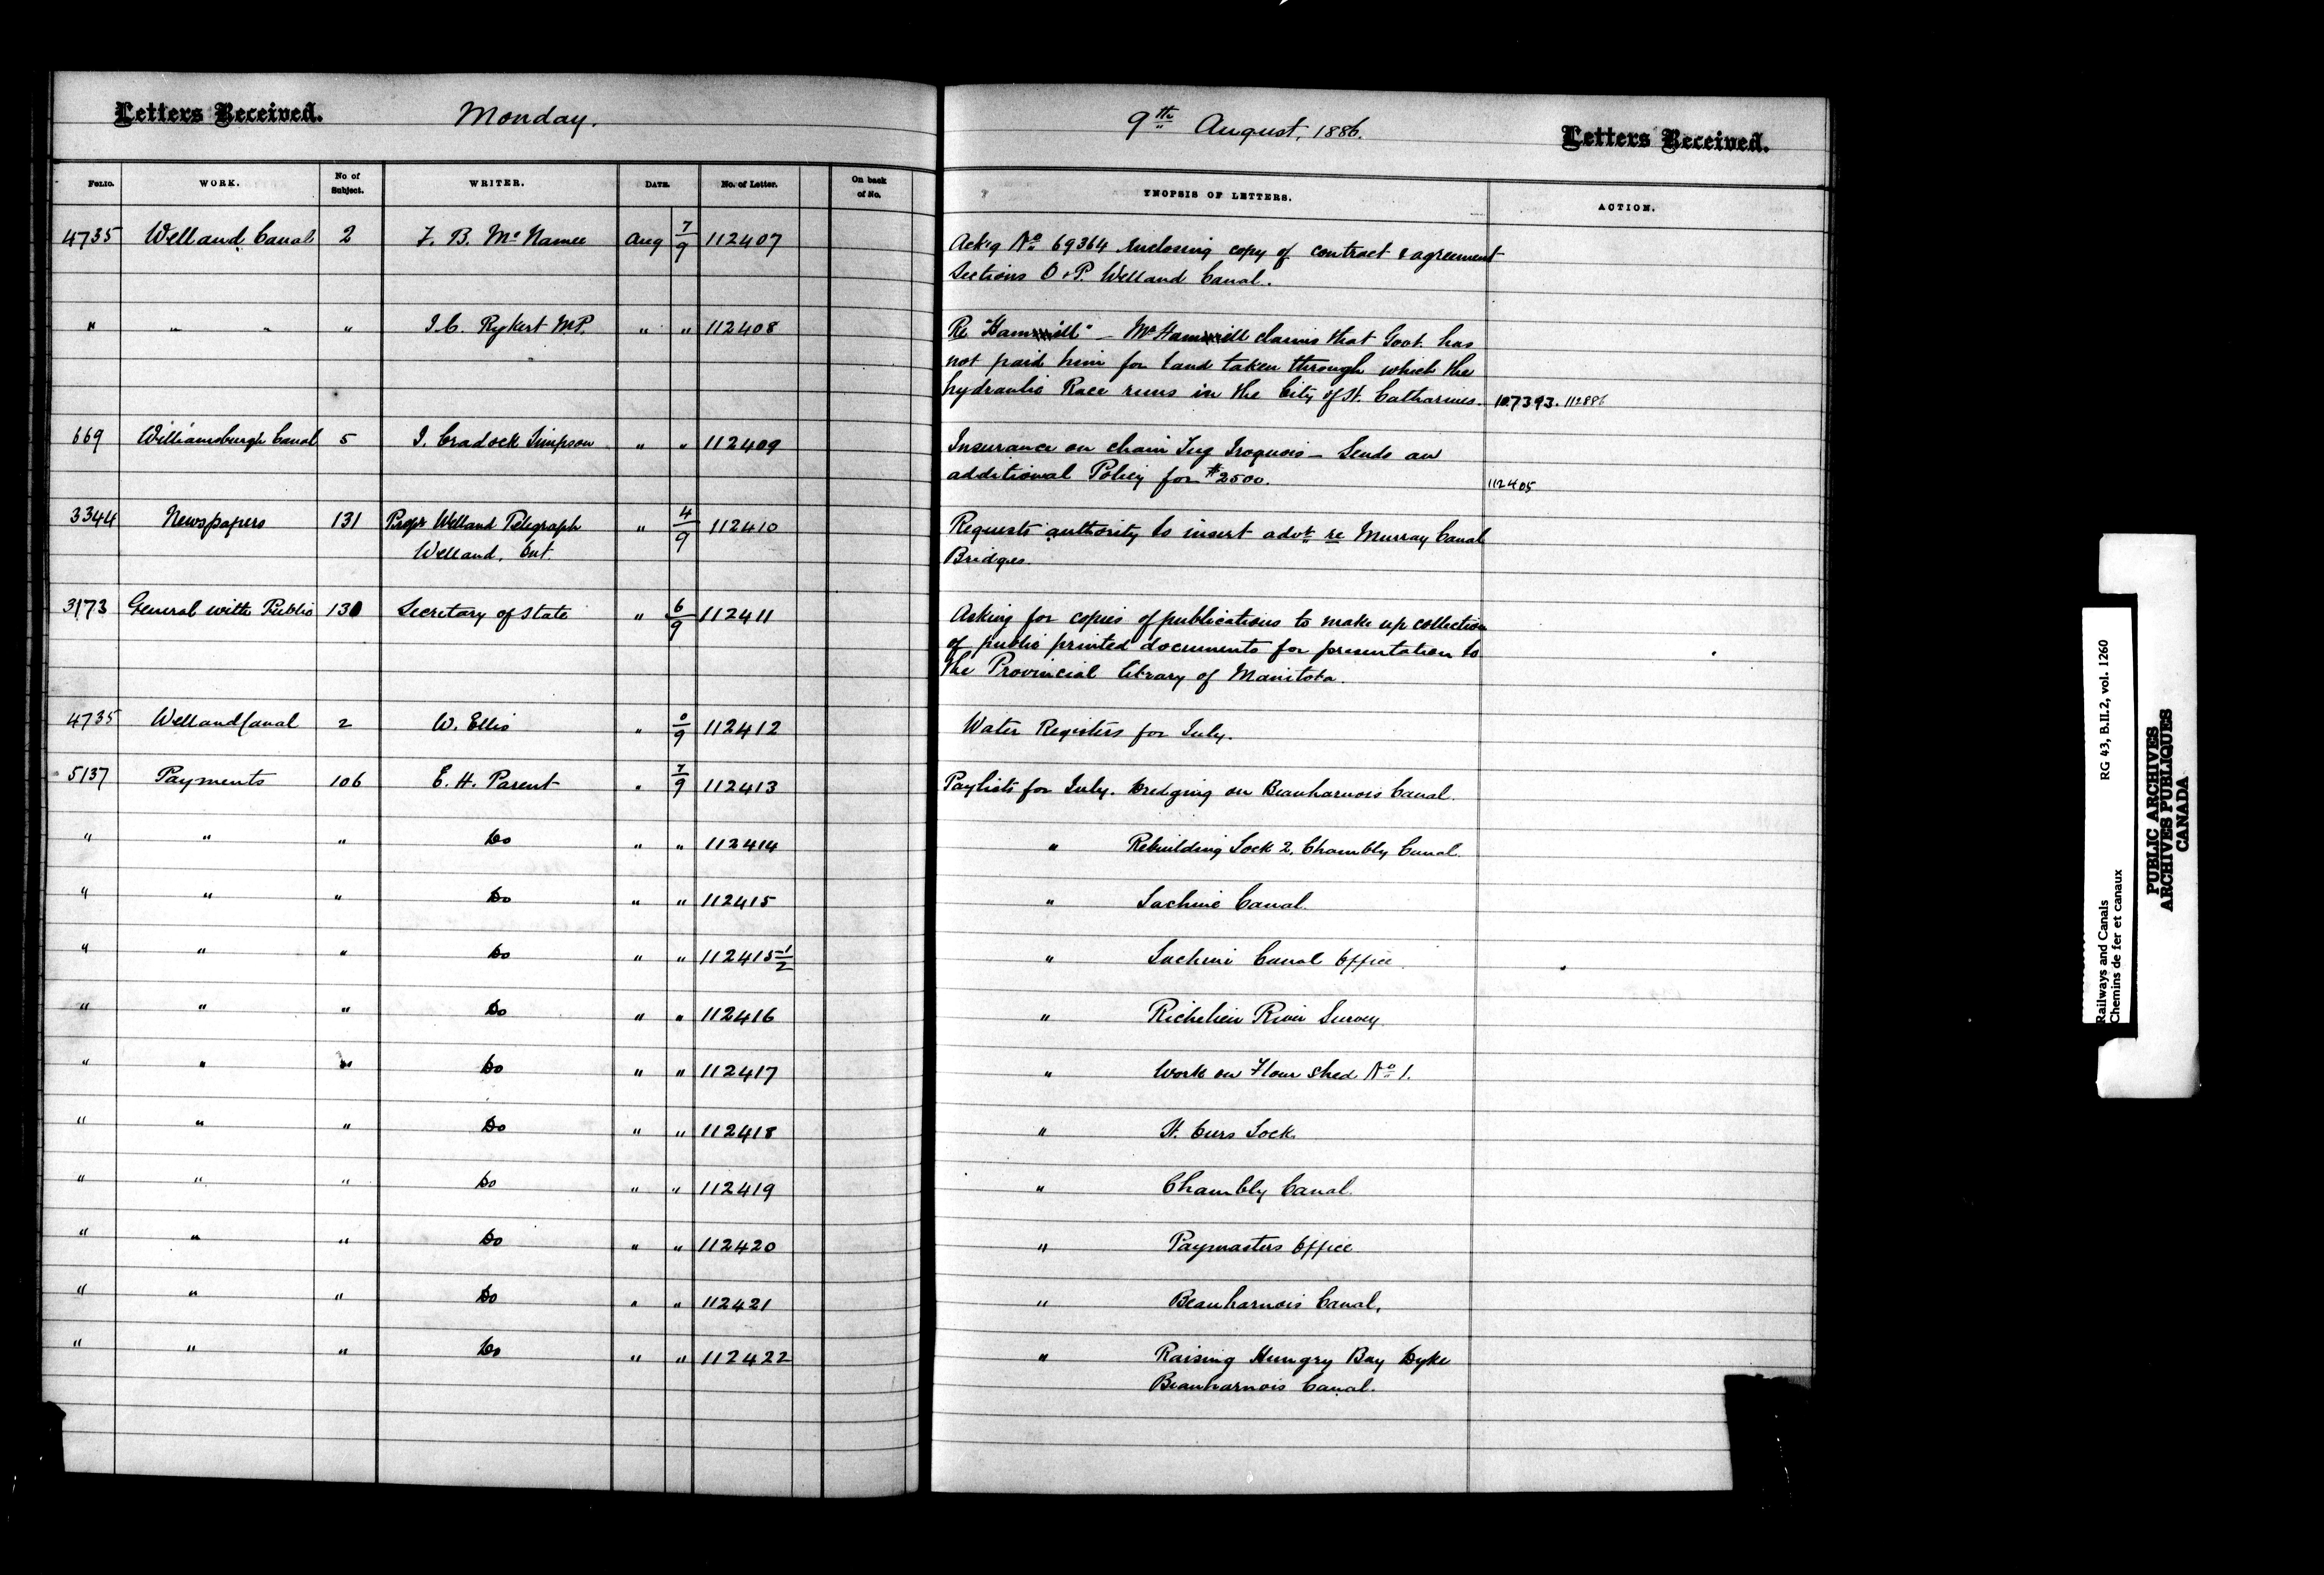 Letters Received. Monday. 9th August, 1886. Letters Received.
FOLIO. WORK. No of Subject. WRITER. DATE. No. of Letter. On back of No. YNOPSIS OF LETTERS. ACTION.
4735 Welland Canal 2 F. B. McNamee Aug 7/9 112407 Ackg No 69364 enclosing copy of contract & agreement
Sections O & P. Welland Canal.
" " " " J.C. Rykert M.P. " " 112408 Re " - Mr claims that Govt. has
not paid him for land taken through which the
hydraulic Race runs in the City of St. Catharines. 107393. 112886
669 Williamsburgh Canal 5 J. Cradock Simpson " " 112409 Insurance on chain Tug Iroquois - Sends an
additional Policy for $2500. 112405
3344 Newspapers 131 Propr Welland Telegraph " 4/9 112410 Requests authority to insert advt re Murray Canal
Welland, Ont. Bridges.
3173 General with Public 130 Secretary of State " 6/9 112411 Asking for copies of publications to make up collection
of public printed documents for presentation to
the Provincial library of Manitoba.
4735 Welland Canal 2 W. Ellis " 0/9 112412 Water Registers for July.
5137 Payments 106 E. H. Parent " 7/9 112413 Paylists for July. Dredging on Beauharnois Canal.
" " " Do " " 112414 " Rebuilding Lock 2, Chambly Canal.
" " " Do " " 112415 " Lachine Canal.
" " " Do " " 112415 1/2 " Lachine Canal Office.
" " " Do " " 112416 " Richelieu River Survey
" " " Do " " 112417 " Work on Flour Shed No 1.
" " " Do " " 112418 " St. Ours Lock.
" " " Do " " 112419 " Chambly Canal.
" " " Do " " 112420 " Paymasters Office
" " " Do " " 112421 " Beauharnois Canal.
" " " Do " " 112422 " Raising Hungry Bay Dyke
Beauharnois Canal.
Railways and Canals RG 43, B.II.2, vol. 1260
Chemins de fer et canaux
PUBLIC ARCHIVES
ARCHIVES PUBLIQUES
CANADA